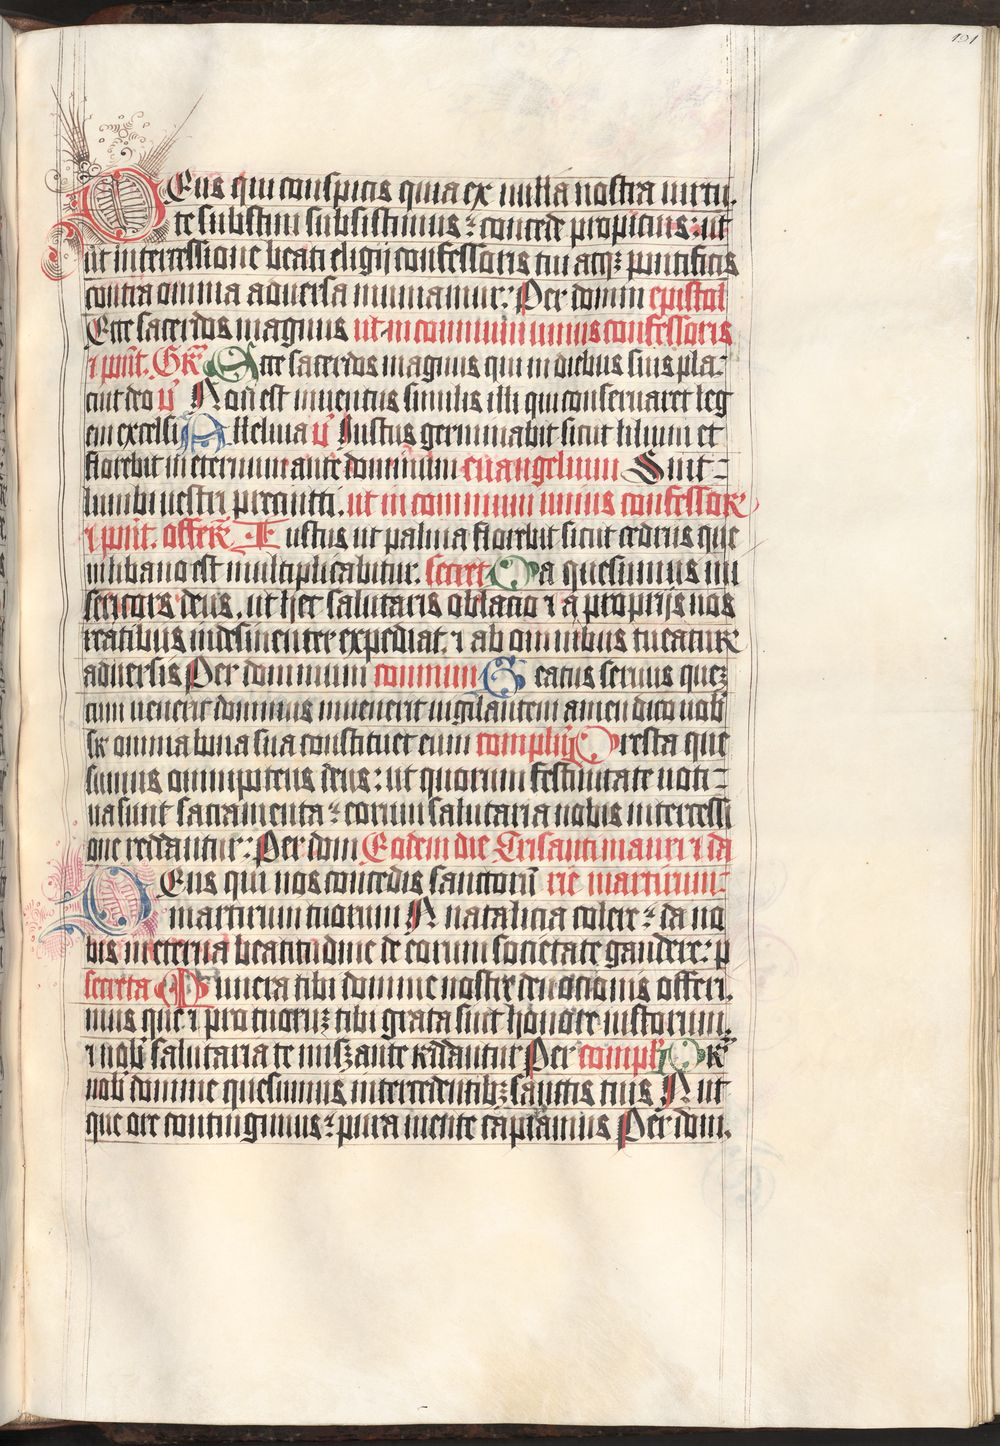 191
Deus qui conspicis quia ex nulla nostra uirtu,
te substini subsistimus : concede propicius : ut
ut intercessione beati eligij confessoris tui atqʒ pontificis
contra omnia aduersa muniamur : Per domin epistol
Ecce sacerdos magnus ut in communi unius confessoris
⁊ pont. Gr Ecce sacerdos magnus qui in diebus suis pla-
cuit deo v̄ Non est inuentus similis illi qui conseruaret leg
em excelsi Alleluia v̄ Iustus germinabit sicut lilium et
florebit in eternum ante dominum euangelium Sint=
lumbi uestri precincti. ut in communi unius confessor
⁊ pont. offer Iustus ut palma florebit sicut cedrus que
in libano est multiplicabitur. secret Da quesumus mi
sericors deus, ut hec salutaris oblacio ⁊ a proprijs nos
reatibus indesinenter expediat. ⁊ ab omnibus tueatur
aduersis Per dominum commun Beatus seruus queʒ
cum uenerit dominus inuenerit uigilantem amen dico uob
super omnia bona sua constituet eum complīg Presta que
sumus omnipotens deus : ut quorum festiuitate uoti=
ua sunt sacramenta : eorum salutaria nobis intercessi
one reddantur : Per dom Eodem die Crisanti mauri ⁊ da
Deus qui nos concedis sanctorū rie martirum=
martirum tuorum N natalicia colere : da no
bis in eterna beatitudine de eorum societate gaudere : p
secreta Munera tibi domine nostre deuocionis offeri,
mus que ⁊ pro tuoruʒ tibi grata sint honore iustorum,
⁊ nob salutaria te misʒante reddantur Per compl Or
nob domine quesumus intercedentibʒ sanctis tuis N ut
que ore contingimus : pura mente capiamus Per dom,